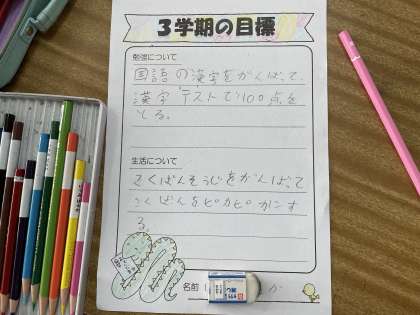 3学期の目標
勉強について
国語の漢字をがんばって、
漢字テストで100点を
とる。
生活について
こくばんそうじをがんばって
こくばんをピカピカにす
る。
名前